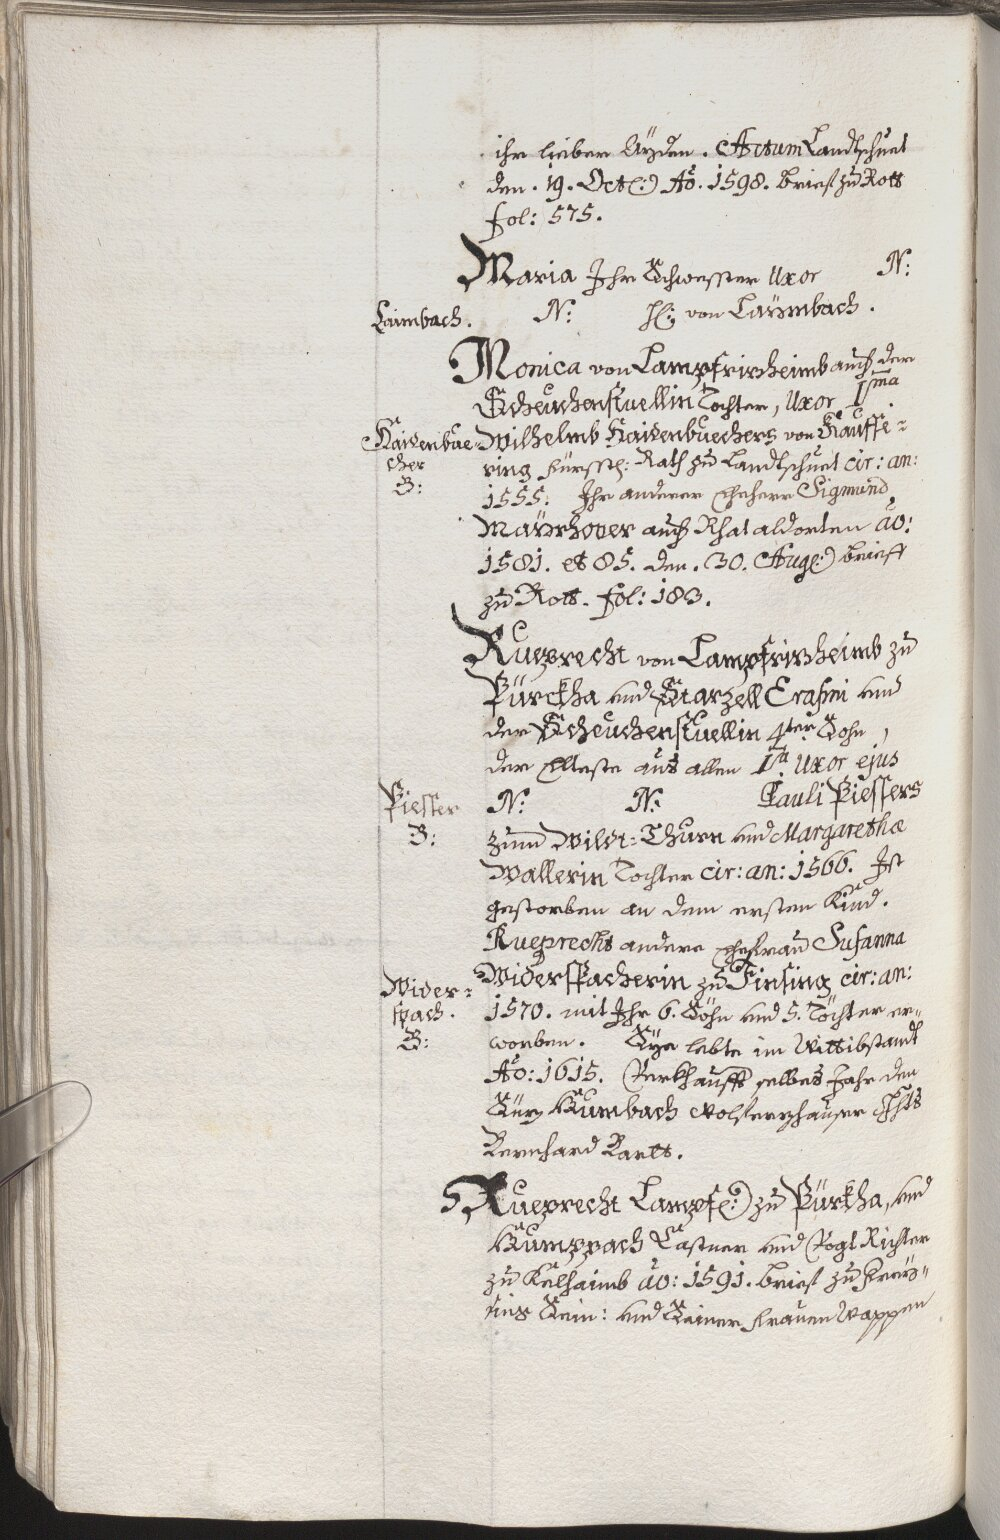 ihr lieber Ayden. Actum Landtshuet
den. 19. Oct(:) Ao. 1598. brieff zu Rott
fol: 575.
Maria Ihr Schwester Uxor N:
Laimbach. N: H: von Laymbach.
Monica von Lampfrizheimb auch der
Scheuchenstuellin Tochter, Uxor I ma
Haidenbue- Wilhelmb Haidenbuechers von Kauffe-
cher ring fürstl: Rath zu Landtshuet cir: an:
B: 1555. Ihr anderer Eheherr Sigmund
Mayrhover auch Rhat aldorten ao:
1581. et 85. den. 30. Aug(:) brieff
zu Rott. fol: 183.
Rueprecht von Lampfrizheimb zu
Pürckha und Starzell Erasmi und
der Scheuchenstuellin 4ter Sohn,
der Elteste aus allen I ta Uxor ejus
Piesser N: N: Pauli Piessers
B: zum Wildt-Thurn und Margarethæ
Wallerin Tochter cir: an: 1566. Ist
gestorben an dem ersten Kind.
Rueprechts andere Ehefrau Susanna
Wider- Widerspacherin zu Finsing cir: an:
spach. 1570. mit Ihr 6. Söhn und 5. Töchter er-
B: worben. Sye lebte im Wittibstandt
Ao: 1615. Verkhaufft selbes Jahr den
Bernhard Bartt.
Rueprecht Lampf(:) zu Pürkha, und
Kumppach Castner und Vogt Richter
zu Kelhaimb ao: 1591. brieff zu
Sein: und Seiner frauen Wappen